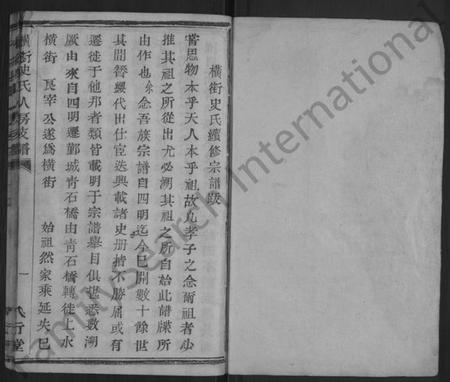 橫街史氏續修宗譜跋
嘗思物本乎天人本乎祖故凡孝子之念爾祖者必
推其祖之所從出尤必溯其祖之所自始此譜牒所
由作也余念吾族宗譜自四明迄今已閱數十餘世
其間簪纓代出仕宦迭興載諸史册指不勝屈或有
遷徙于他邦者類皆載明于宗譜舉目俱悉敦溯
厥由來自四明遷鄞城青石橋由青石橋轉徙上水
橫街 良宰公遂爲橫街 始祖然家乘延失已
橫街史氏八房支譜
一
八行堂
FamilySearch International